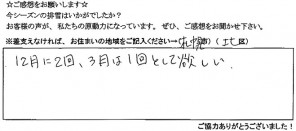 ☆ご感想をお願いします☆
今シーズンの排雪はいかがでしたか?
お客様の声が、私たちの原動力になっています。ぜひ、ご感想をお聞かせ下さい。
※差支えなければ、お住まいの地域をご記入ください→(札幌市)(北区)
12月に2回、3月は1回として欲しい
ご協力ありがとうございました!